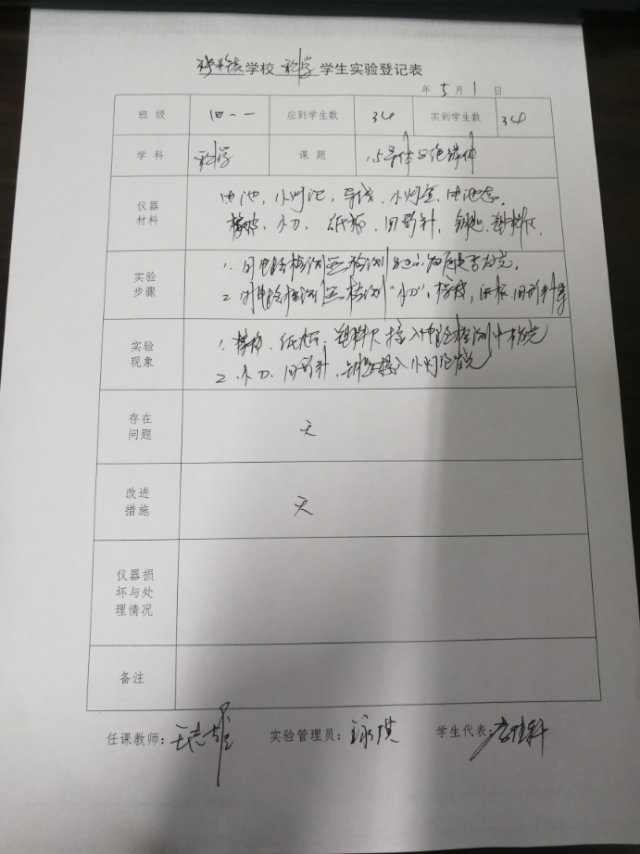 学校 科学 学生实验登记表
年 5 月 1 日
班 级 四一一 应到学生数 34 实到学生数 34
学 科 科学 课 题 1.5导体与绝缘体
仪器材料 电池、小灯泡、导线、小灯座、电池盒、
橡皮、小刀、纸板、回形针、钥匙、塑料尺、
实验步骤 1.用电路检测器检测
2.用电路检测器检测“小刀”、橡皮、纸板、回形针等
实验现象 1.橡皮、纸板、塑料尺接入电路检测中
2.小刀、回形针、钥匙接入小灯泡发光
存在问题 无
改进措施 无
仪器损坏与处理情况
备注
任课教师: 实验管理员: 学生代表: